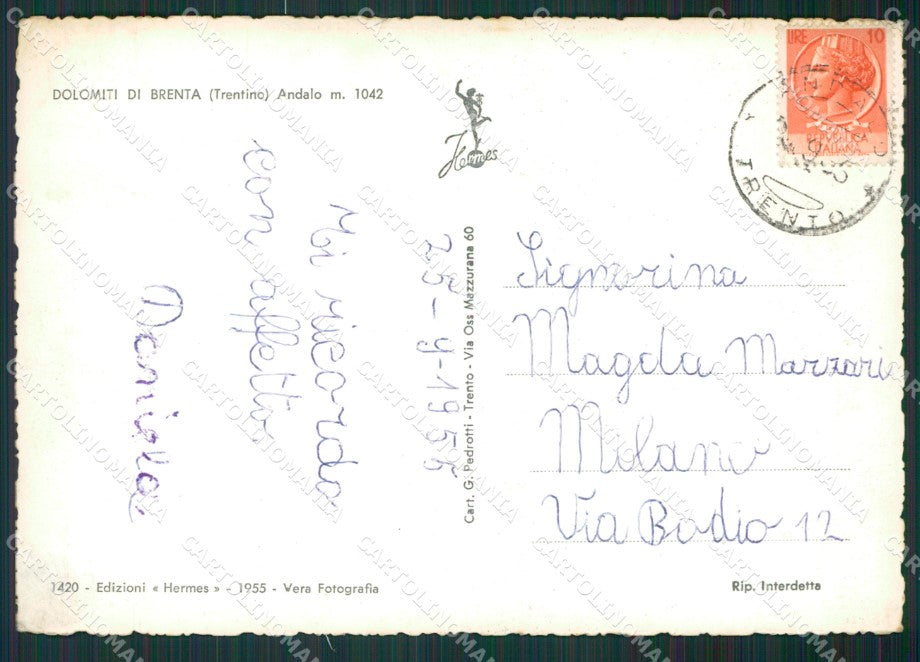 DOLOMITI DI BRENTA (Trentino) Andalo m. 1042
Hermes
LIRE 10
REPUBBLICA
ITALIANA
TRENTO
25-9-1955
Mi ricordo
con affetto
Cart. G. Pedrotti - Trento - Via Oss Mazzurana 60
Signorina
Magda Mazzari
Milano
Via Bodio 12
1420 - Edizioni « Hermes » - 1955 - Vera Fotografia
Rip. Interdetta
CARTOLINOMANIA